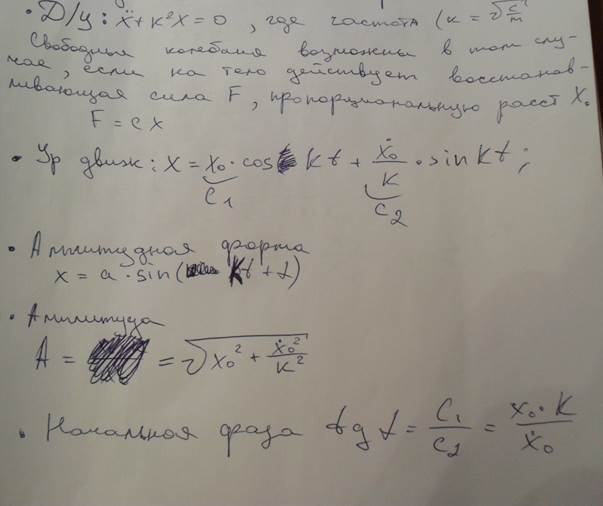 • Д/у: ẍ + k²x = 0, где частота (k = √c/m
Свободные колебания возможны в том слу-
чае, если на тело действует восстанав-
ливающая сила F, пропорциональную расст x.
F = cx
• Ур движ: x = x₀ · cos kt + ẋ₀/k · sin kt;
C₁
C₂
• Амплитудная форма
x = a · sin( kt + α)
• Амплитуда
A = = √x₀² + ẋ₀²/k²
• Начальная фаза tg α = C₁/C₂ = x₀·k/ẋ₀